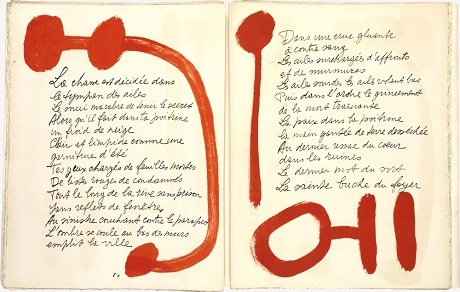 La chance est décidée dans
le tympan des ailes
Le souci macabre de tenir le secret
Alors qu'il fait dans ta poitrine
un froid de neige
Clair et limpide comme une
garniture d'été
Tes yeux chargés de feuilles mortes
De listes rouges de condamnés
Tout le long de la rive sans prison
Sans reflets de fenêtre
Au sinistre couchant contre le parapet
L'ombre se coule au bas de murs
emplit la ville
Dans une crue gluante
à contre sang
Les ailes surchargés d'affronts
et de murmures
Les ailes sourdes les ails volent bas
Puis dans l'ordre le grincement
de la mort
La paix dans la poitrine
La main gantée de terre desséchée
Au dernier essor du cœur
dans les ruines
Le dernier mot du sort
La sainte buche du foyer